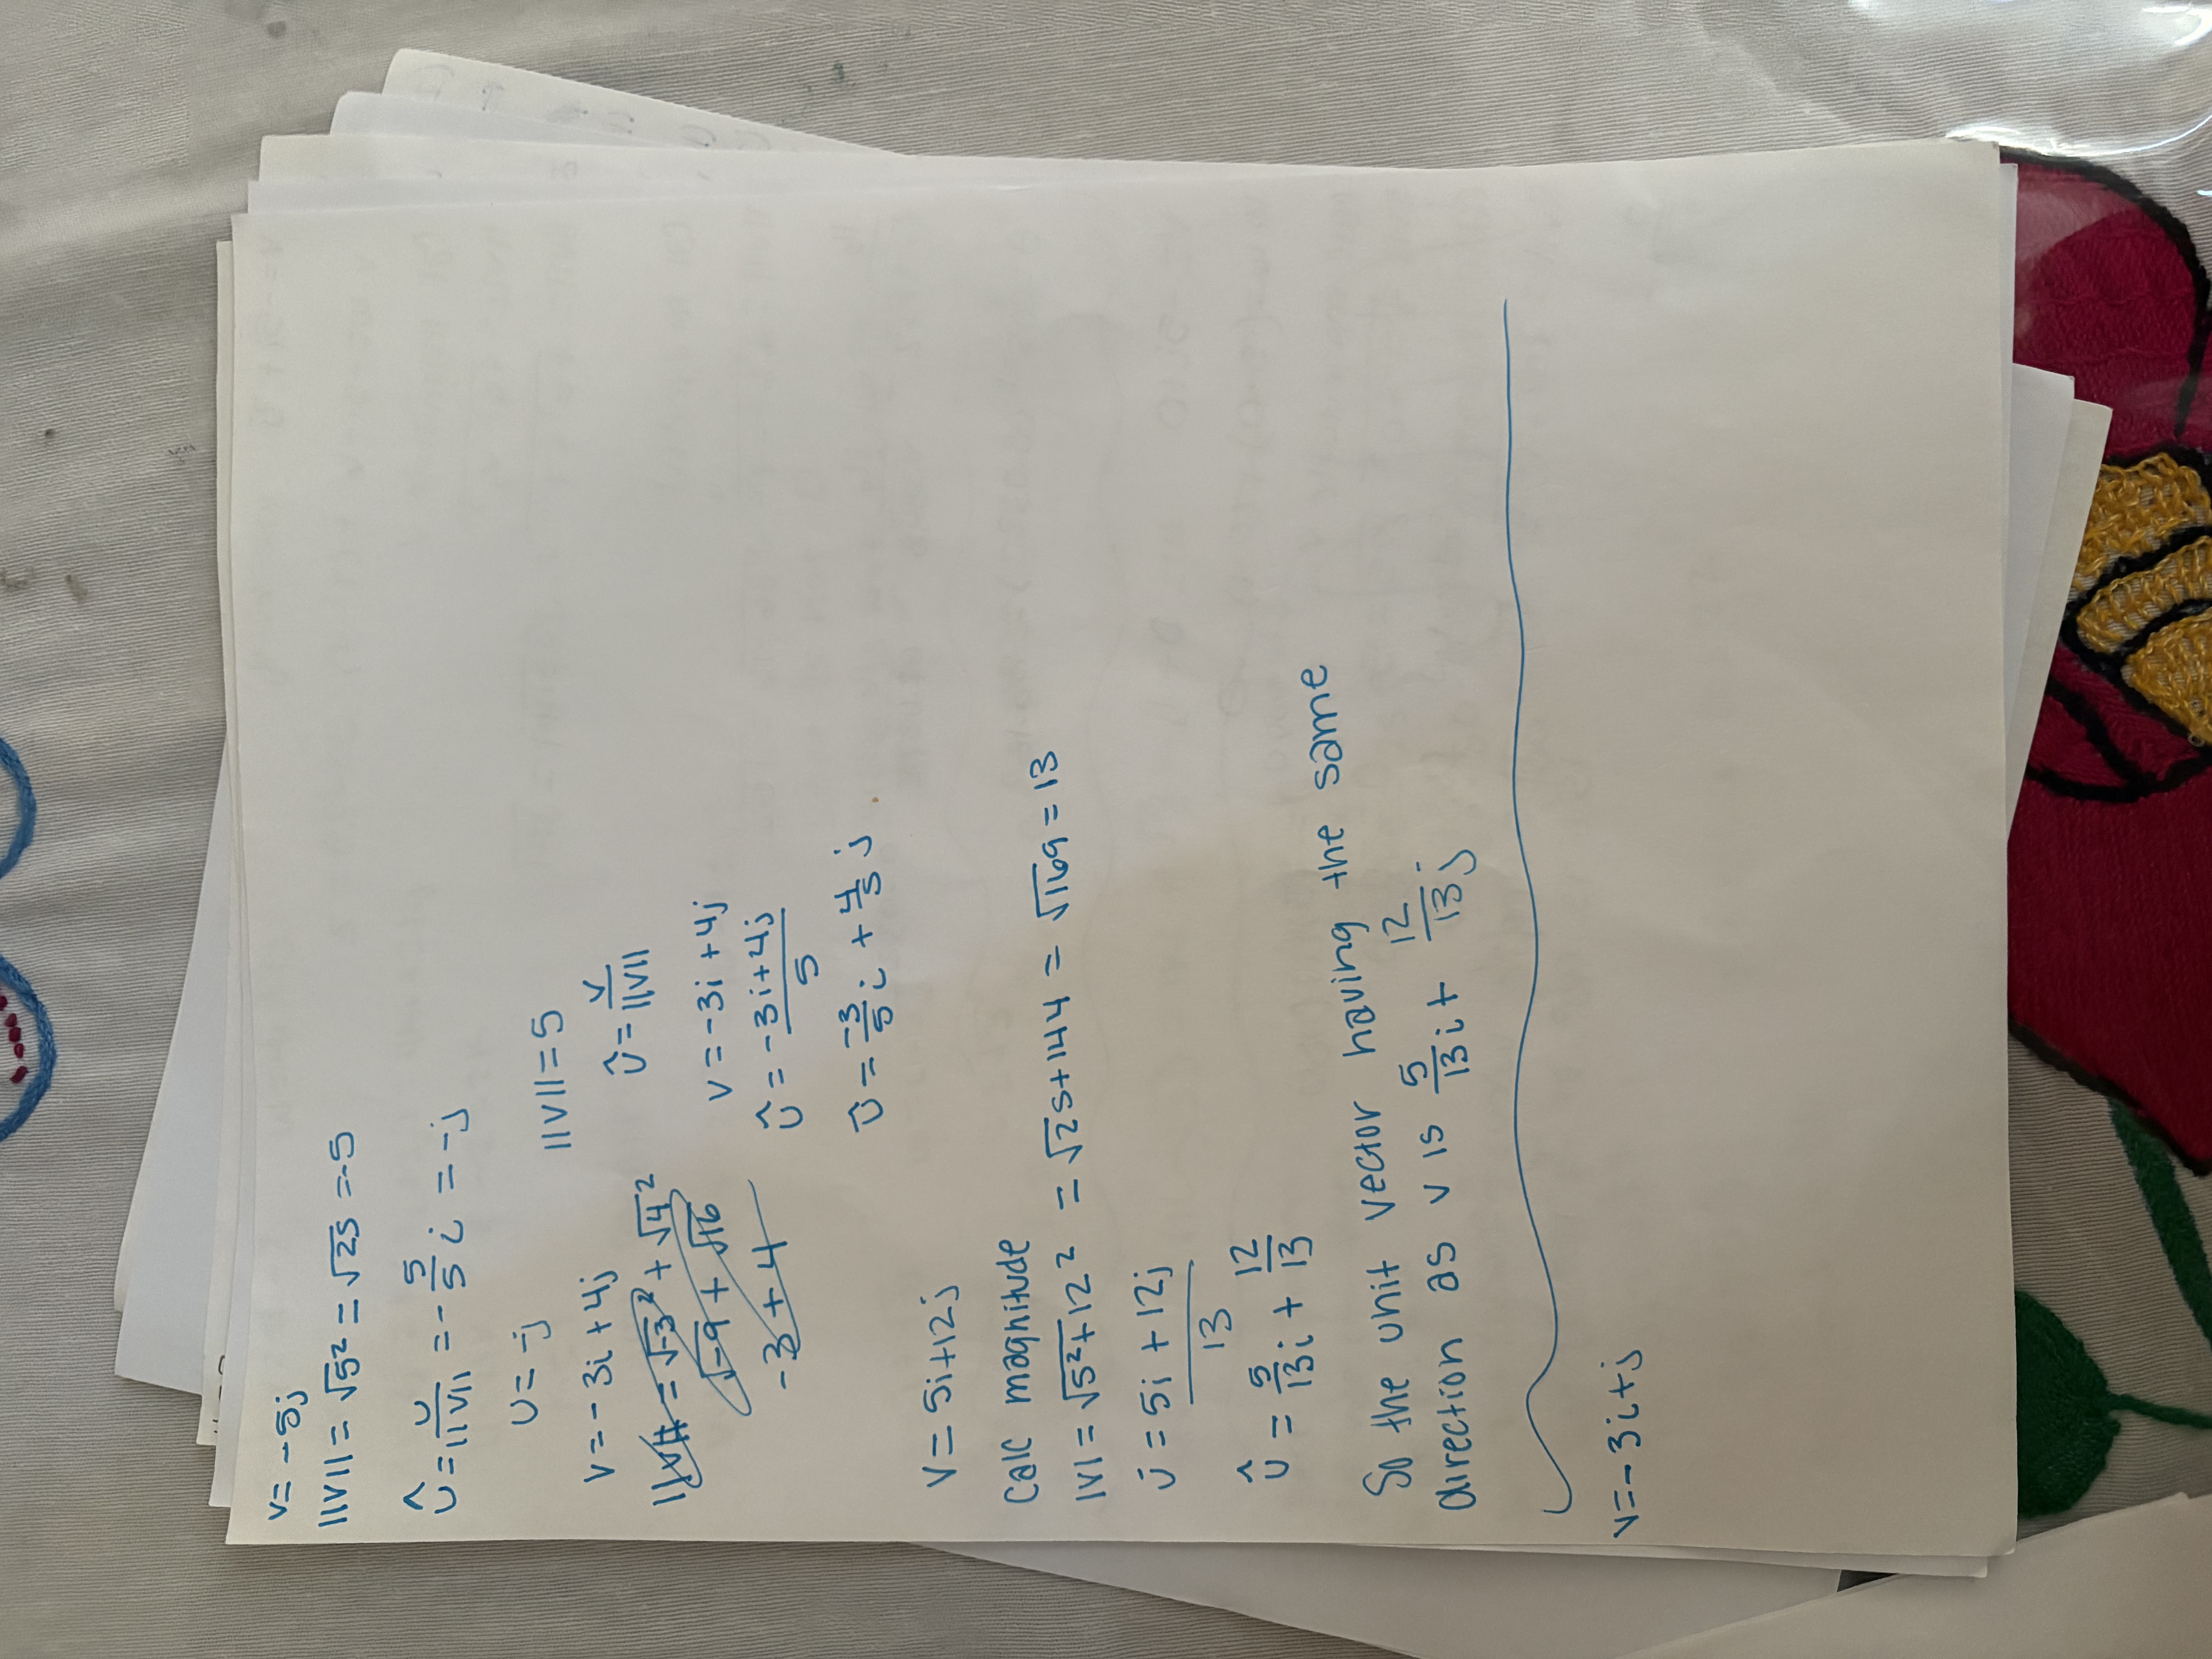 v = -5j
||v|| = √5² = √25 = -5
û = v/||v|| = -5/5 i = -j
u = -j
||v|| = 5
v = -3i + 4j
û = v/||v||
||v|| = √-3² + √4²
√-9 + √16
-3 + 4
v = -3i + 4j
û = -3i + 4j / 5
û = -3/5 i + 4/5 j
v = 5i + 12j
calc magnitude
|v| = √5² + 12² = √25 + 144 = √169 = 13
û = 5i + 12j / 13
û = 5/13 i + 12/13
So the unit vector having the same
direction as v is 5/13 i + 12/13 j
v = -3i + j